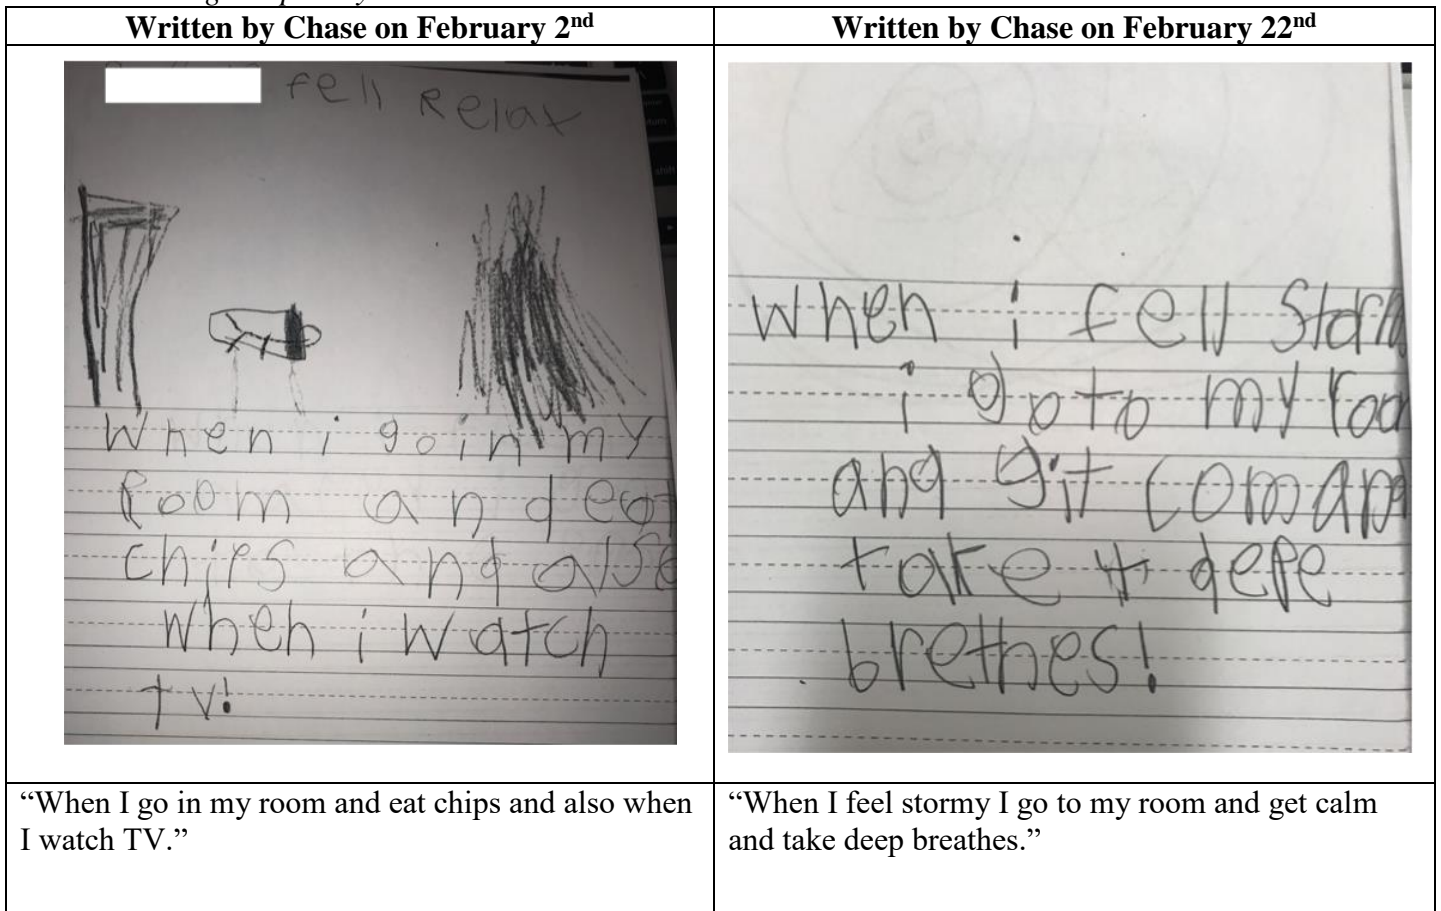 Written by Chase on February 2nd
Written by Chase on February 22nd
fell Relax
When i go in my
Room and eat
chips and also
when i watch
tv!
When i fell Storm
i go to my roo
and git com and
take 4 depe
brethes!
“When I go in my room and eat chips and also when
I watch TV.”
“When I feel stormy I go to my room and get calm
and take deep breathes.”